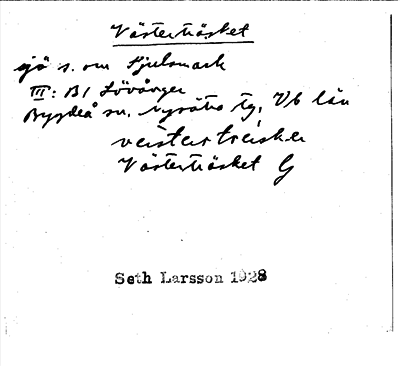 Västerträsket
sjö s. om Hjulsmark
III: B1 Lövånger
Bygdeå sn. Nysätra tg, Vb län
västerträske
Västerträsket G
Seth Larsson 1928